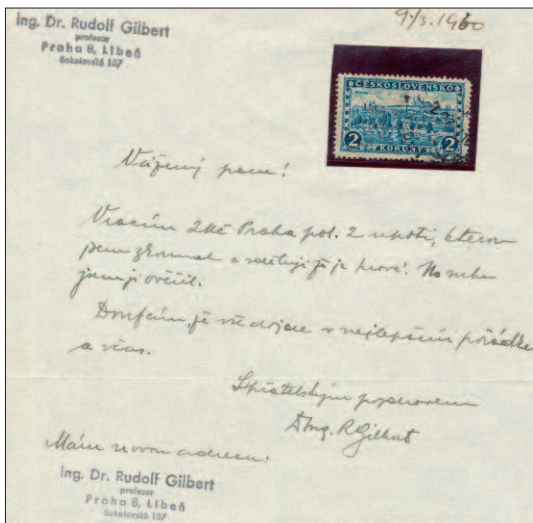 Ing. Dr. Rudolf Gilbert
profesor
Praha 8, Libeň
Sokolovská 157
9/3. 1960
ČESKOSLOVENSKO
2 KORUNY 2
Vážený pane!
Vracím 2Kč Praha pol. 2 , kterou
jsem zkoumal a sděluji že je pravá. Na rubu
jsem ji ověřil.
Doufám, že vše dojde v nejlepším pořádku
a včas.
S přátelským pozdravem
Ing. RGilbert
Mám novou adresu:
Ing. Dr. Rudolf Gilbert
profesor
Praha 8, Libeň
Sokolovská 157